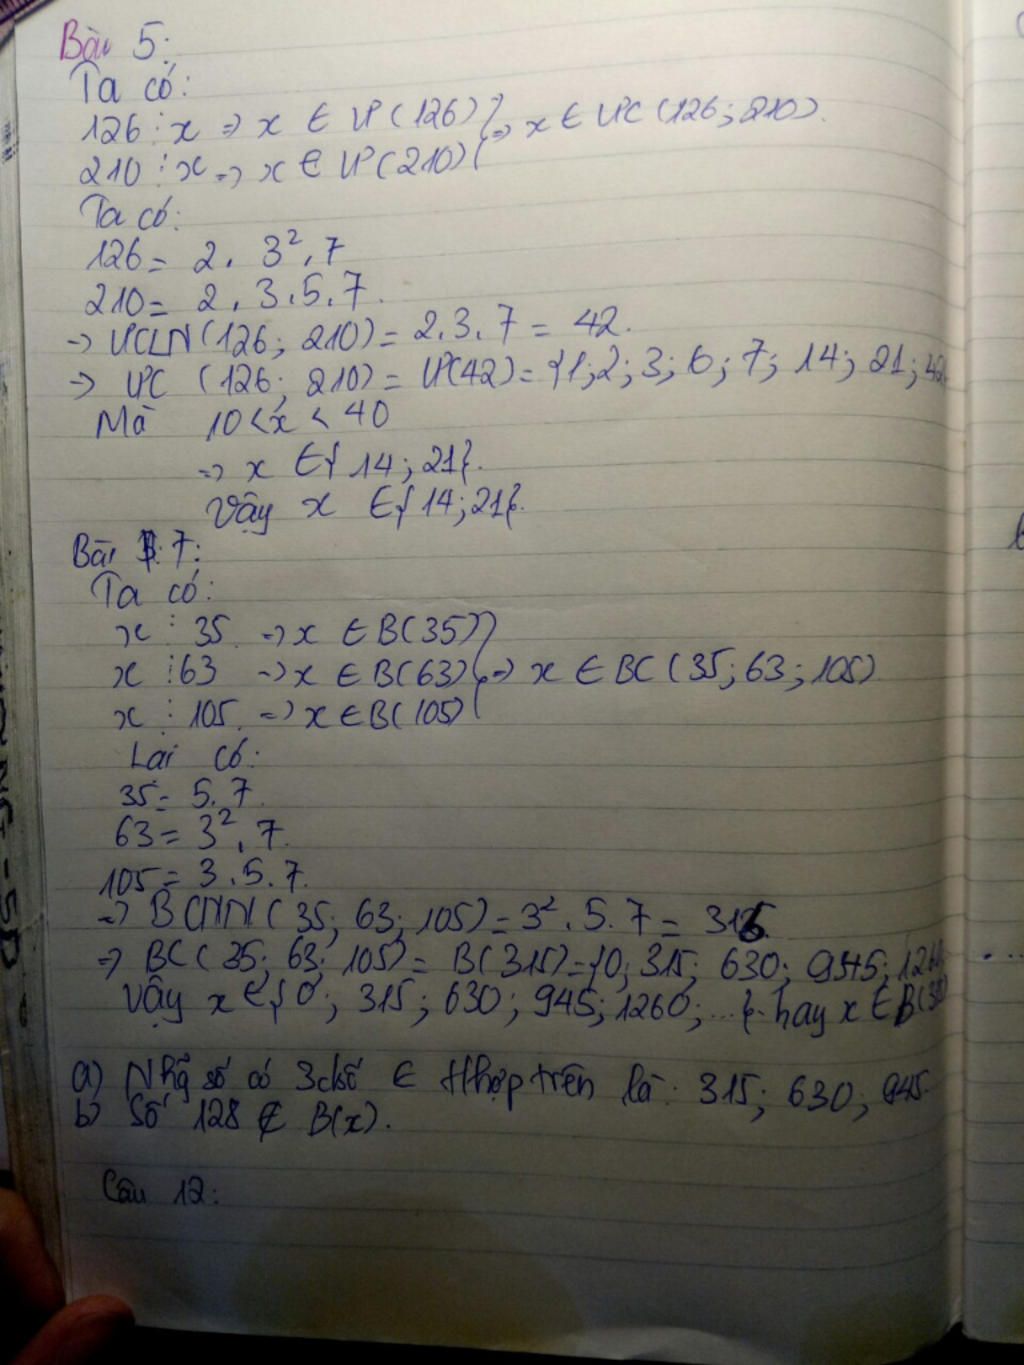 Bài 5:
Ta có:
126 ⋮ x => x ∈ Ư(126) } => x ∈ ƯC (126; 210).
210 ⋮ x => x ∈ Ư(210)
Ta có:
126 = 2 . 3² . 7
210 = 2 . 3 . 5 . 7.
=> ƯCLN (126; 210) = 2. 3. 7 = 42.
=> ƯC (126; 210) = Ư(42) = {1; 2; 3; 6; 7; 14; 21; 42
Mà 10 < x < 40
=> x ∈ { 14; 21}.
Vậy x ∈ { 14; 21}.
Bài 7:
Ta có:
x ⋮ 35 => x ∈ B(35)
x ⋮ 63 => x ∈ B(63) } => x ∈ BC (35; 63; 105)
x ⋮ 105 => x ∈ B(105)
Lại có:
35 = 5. 7.
63 = 3² . 7.
105 = 3. 5. 7.
=> BCNN (35; 63; 105) = 3² . 5. 7 = 315.
=> BC (35; 63; 105) = B(315) = {0; 315; 630; 945; 1260
Vậy x ∈ { 0; 315; 630; 945; 1260; ...}. hay x ∈ B(315)
a) Nhg số có 3 chsố ∈ t/hợp trên là: 315; 630; 945.
b) Số 128 ∉ B(x).
Câu 12: